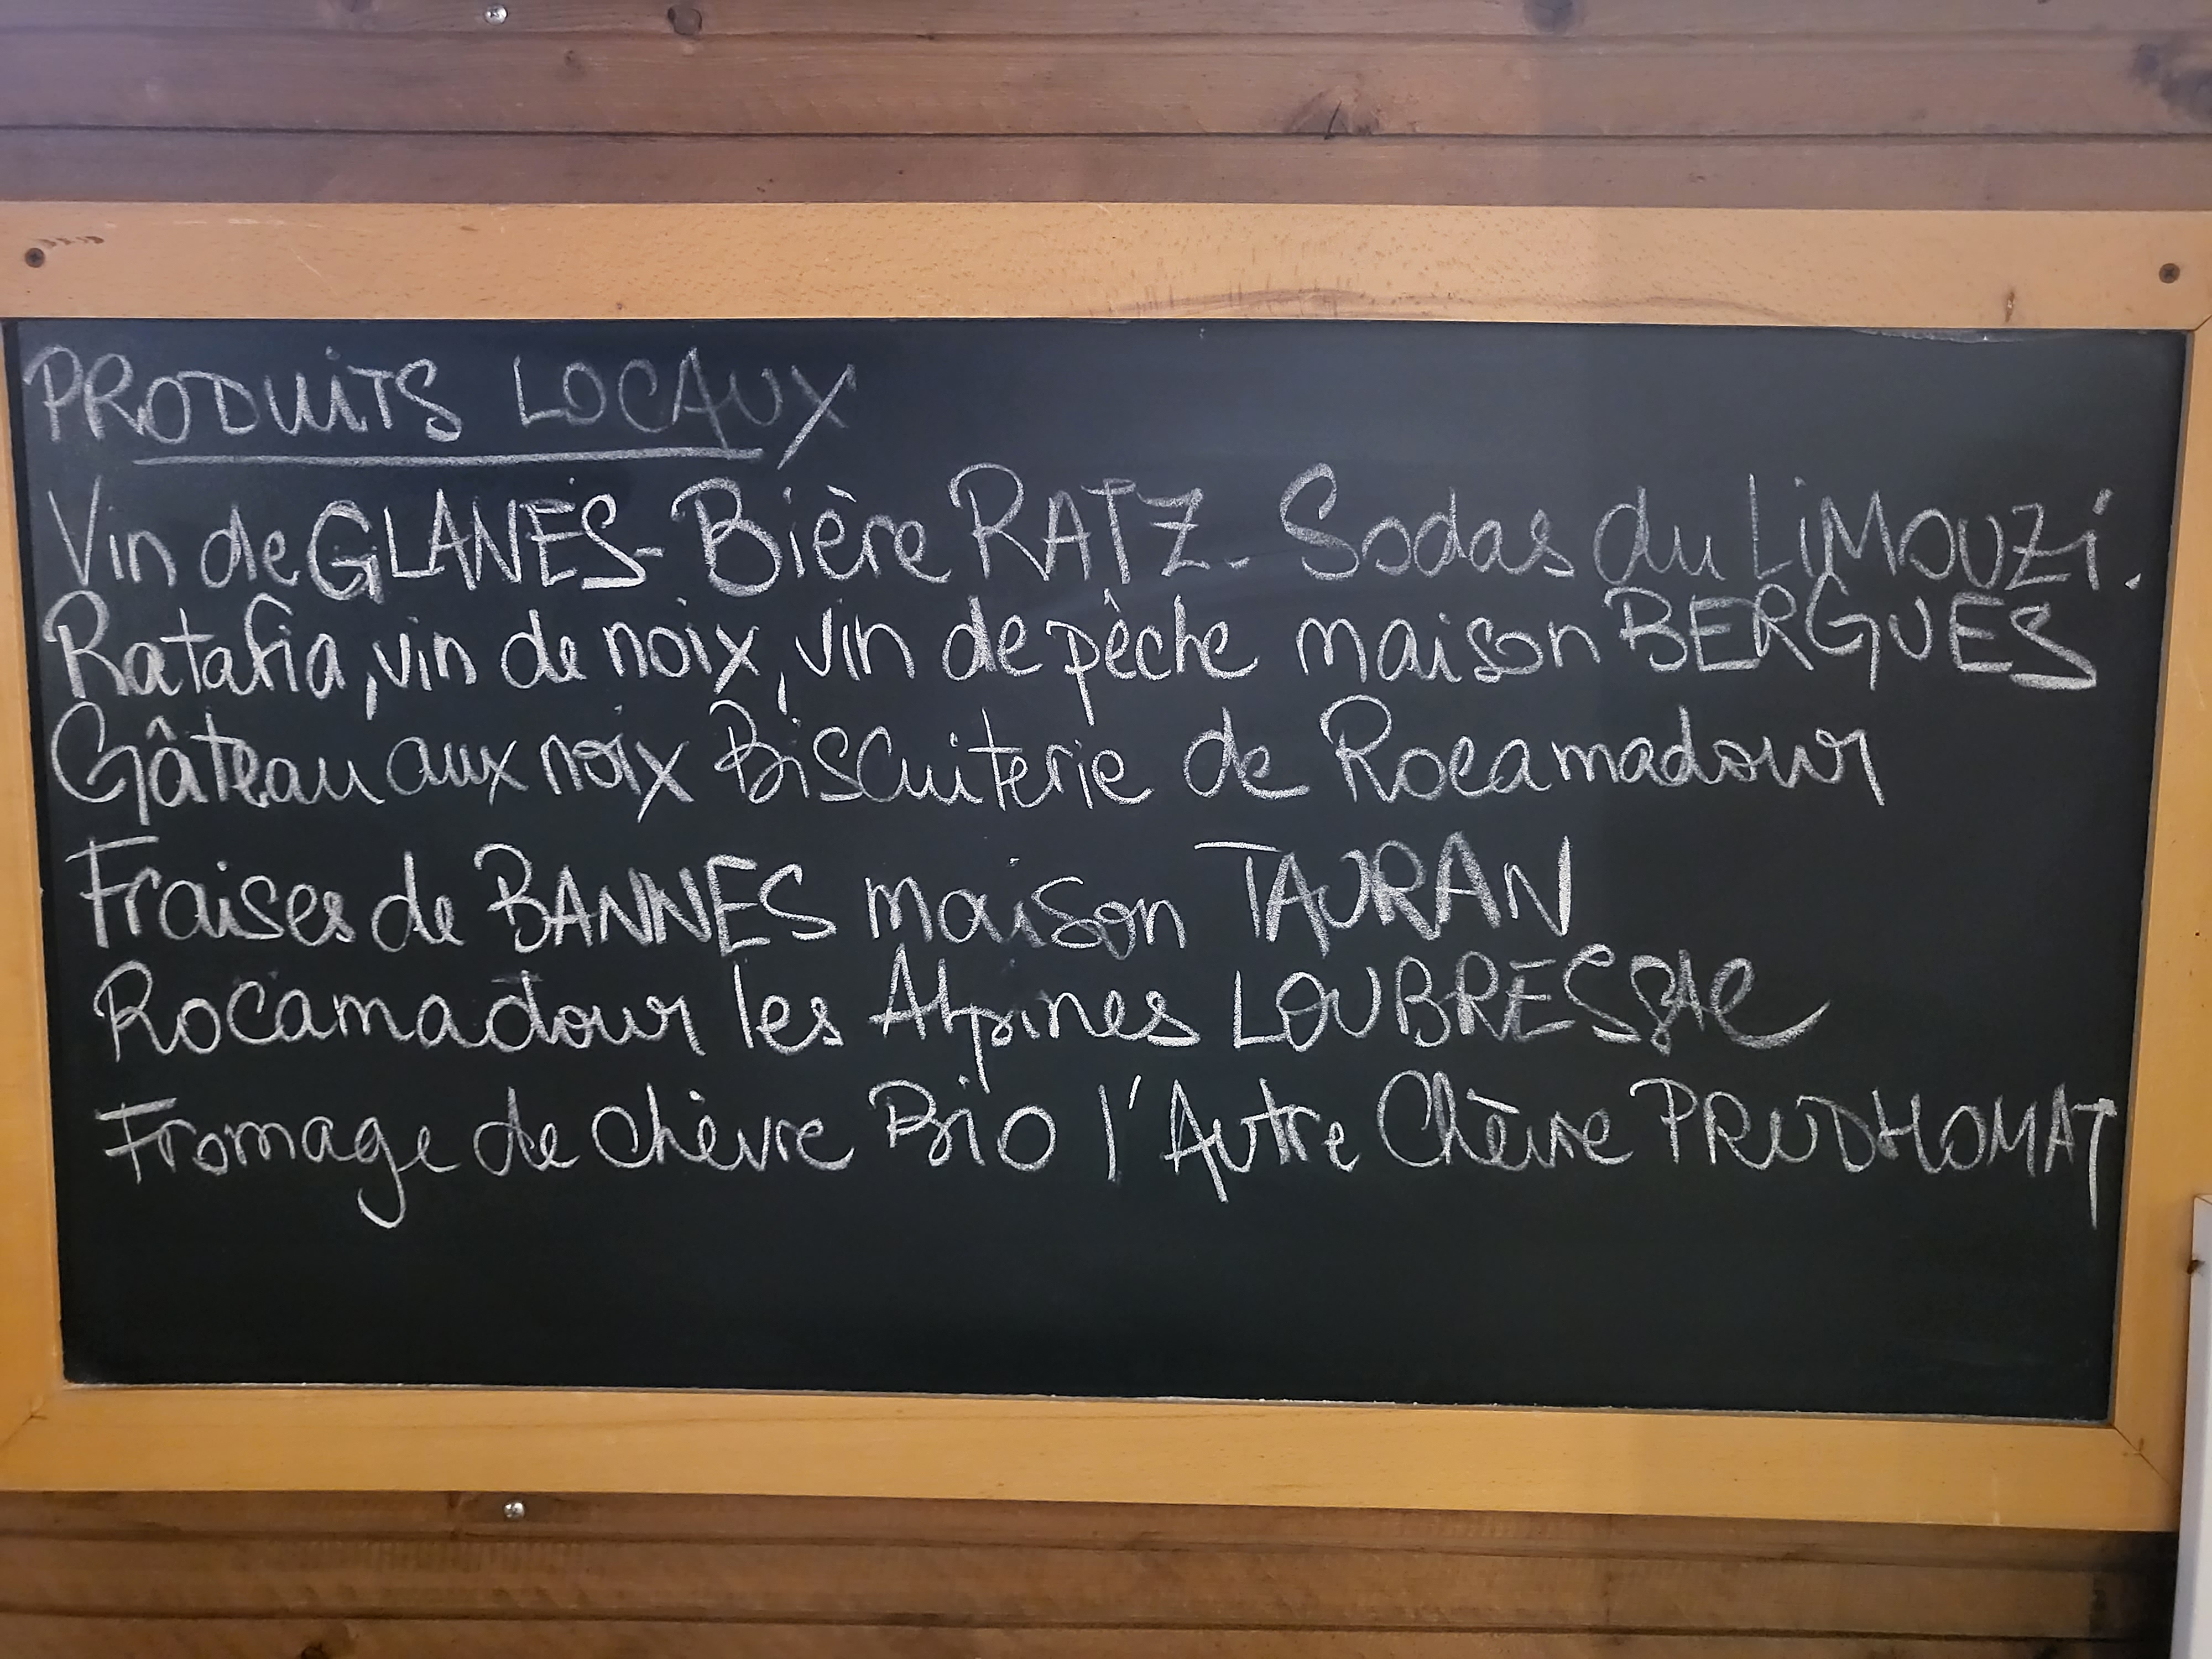 PRODUITS LOCAUX
Vin de GLANES - Bière RATZ - Sodas du LiMOUZi.
Ratafia, vin de noix, vin de pêche maison BERGUES
Gâteau aux noix Biscuiterie de Rocamadour
Fraises de BANNES maison TAURAN
Rocamadour les Alpines LOUBRESSAC
Fromage de chèvre BiO l'Autre Chèvre PRUDHOMAT